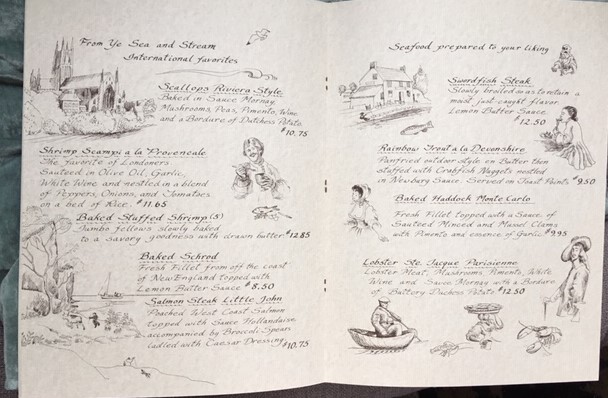 From Ye Sea and Stream
International favorites
Scallops Riviera Style
Baked in Sauce Mornay,
Mushrooms, Peas, Pimento, Wine
and a Bordure of Dutchess Potato
$10.75
Shrimp Scampi a la Provencale
The favorite of Londoners
Sauteed in Olive Oil, Garlic,
White Wine and nestled in a blend
of Peppers, Onions, and Tomatoes
on a bed of Rice. $11.65
Baked Stuffed Shrimp (5)
Jumbo fellows slowly baked
to a savory goodness with drawn butter $12.85
Baked Schrod
Fresh Fillet from off the coast
of New England topped with
Lemon Butter Sauce $8.50
Salmon Steak Little John
Poached West Coast Salmon
topped with Sauce Hollandaise,
accompanied by Broccoli Spears
ladled with Caesar Dressing $10.75
Seafood prepared to your liking
Swordfish Steak
Slowly broiled so as to retain a
moist just-caught flavor.
Lemon Butter Sauce
$12.50
Rainbow Trout a la Devonshire
Panfried outdoor style in Butter then
stuffed with Crabfish Nuggets nestled
in Newburg Sauce. Served on Toast Points $9.50
Baked Haddock Monte Carlo
Fresh Fillet topped with a Sauce of
Sauteed Minced and Mussel Clams
with Pimento and essence of Garlic $9.95
Lobster Ste. Jacque Parisienne
Lobster Meat, Mushrooms, Pimento, White
Wine and Sauce Mornay with a Bordure
of Buttery Duchess Potato $12.50